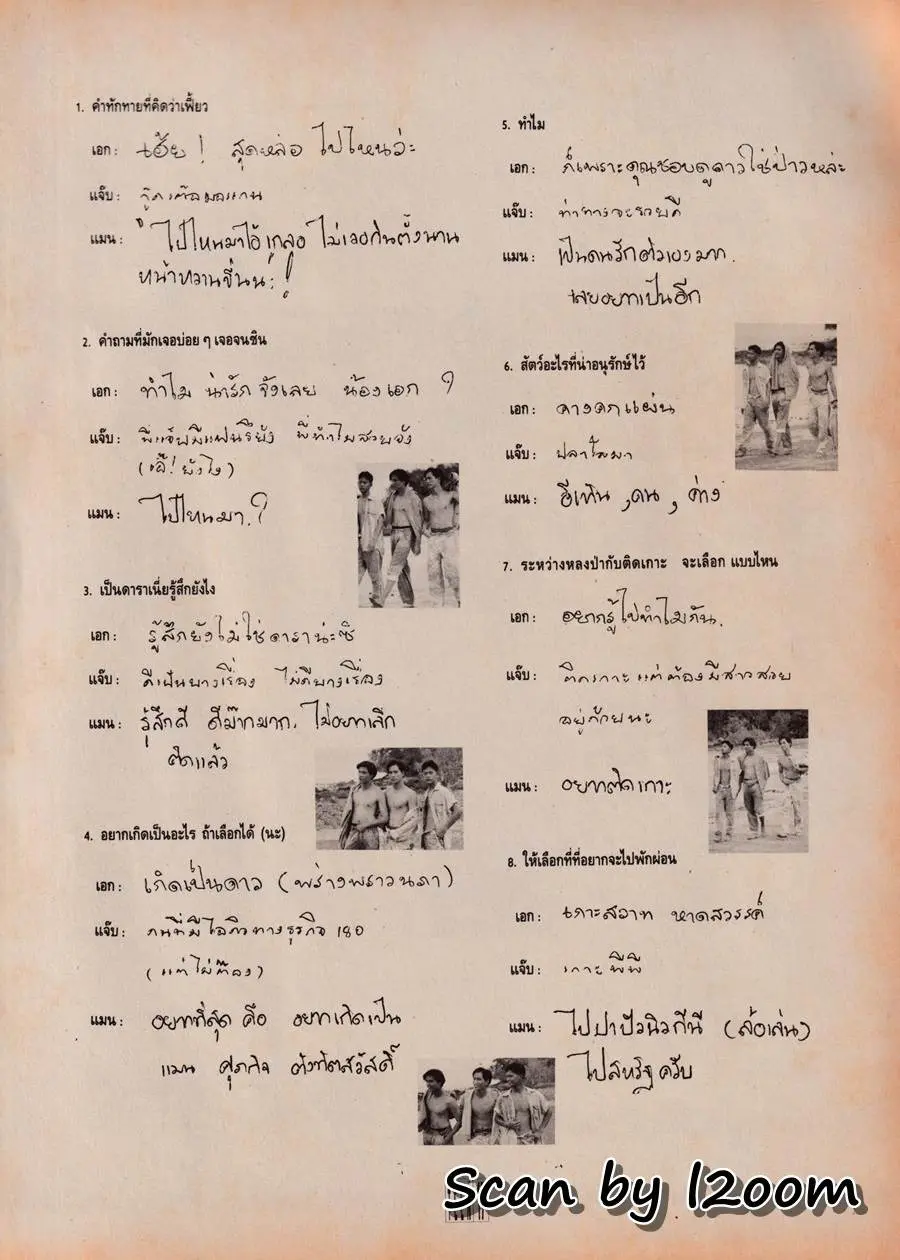 1. คำทักทายที่คิดว่าเฟี้ยว
เอก : เฮ้ย ! สุดหล่อ ไปไหนว่ะ
แจ๊บ :
แมน : ไปไหนมาไอ้เกลอ ไม่เจอกันตั้งนาน
หน้าหวานขึ้นนะ !
2. คำถามที่มักเจอบ่อย ๆ เจอจนชิน
เอก : ทำไม น่ารัก จังเลย น้องเอก ?
แจ๊บ : พี่แจ๊บมีแฟนรึยัง พี่ทำไมสวยจัง
(เอ๊! ยังไง)
แมน : ไปไหนมา ?
3. เป็นดาราเนี่ยรู้สึกยังไง
เอก : รู้สึกยังไม่ใช่ดาราน่ะซิ
แจ๊บ : ดีเป็นบางเรื่อง ไม่ดีบางเรื่อง
แมน : รู้สึกดี ดีม๊ากมาก, ไม่อยากเลิก
ติดแล้ว
4. อยากเกิดเป็นอะไร ถ้าเลือกได้ (นะ)
เอก : เกิดเป็นดาว (พร่างพราวนภา)
แจ๊บ : คนที่มีไอคิวทางธุรกิจ 180
(แต่ไม่ต๊อง)
แมน : อยากที่สุด คือ อยากเกิดเป็น
แมน ศุภกิจ ตังทัตสวัสดิ์
5. ทำไม
เอก : ก็เพราะคุณชอบดูดาวใช่ป่าวหล่ะ
แจ๊บ : ท่าทางจะรวยดี
แมน : เป็นคนรักตัวเองมาก.
เลยอยากเป็นอีก
6. สัตว์อะไรที่น่าอนุรักษ์ไว้
เอก : คางคกแผ่น
แจ๊บ : ปลาโลมา
แมน : อีเห็น , คน , ค่าง
7. ระหว่างหลงป่ากับติดเกาะ จะเลือก แบบไหน
เอก : อยากรู้ไปทำไมกัน.
แจ๊บ : ติดเกาะ แต่ต้องมีสาวสวย
อยู่ด้วยนะ
แมน : อยากติดเกาะ
8. ให้เลือกที่ที่อยากจะไปพักผ่อน
เอก : เกาะสวาท หาดสวรรค์
แจ๊บ : เกาะพีพี
แมน : ไปปาปัวนิวกีนี (ล้อเล่น)
ไปสหรัฐ ครับ
Scan by l2oom